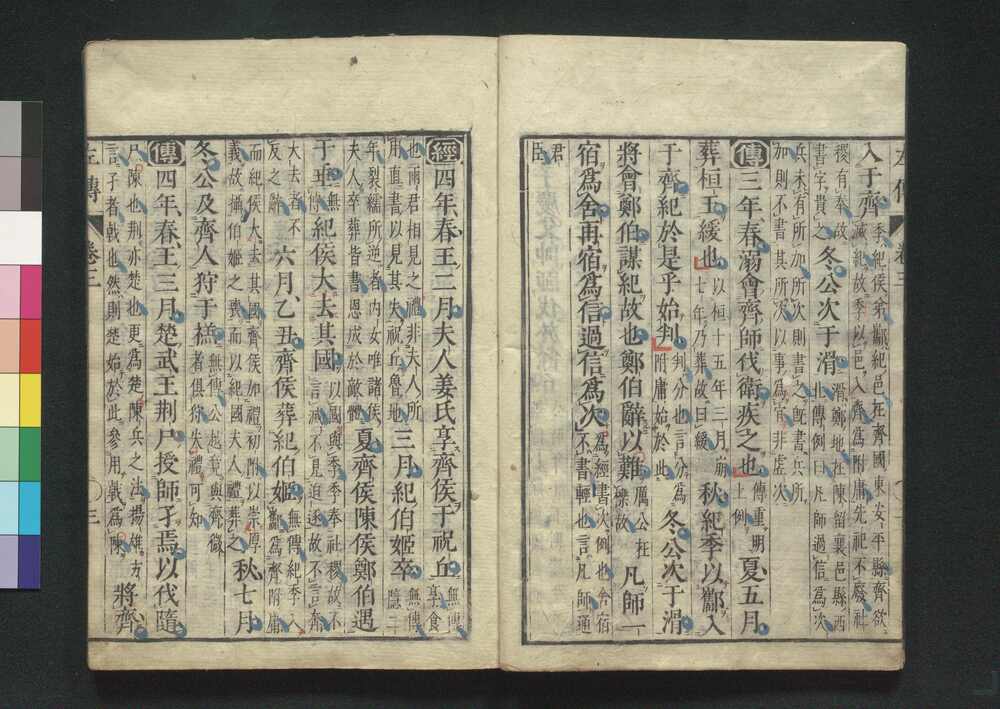 入于齊季紀侯弟酅紀邑在齊國東安平縣齊欲滅紀故季以邑入齊爲附庸先祀不廢社
稷有奉故書字貴之冬公次于滑滑鄭地在陳留襄邑縣西北傳例曰凡師過信爲次
兵未有所加所次則書之旣書兵所加則不書其所次以事爲宜非虛次
傳三年春溺會齊師伐衛疾之也傳重明上例夏五月
葬桓王緩也以桓十五年三月崩七年乃葬故曰緩秋紀季以酅入
于齊紀於是乎始判判分也言分爲附庸始於此冬公次于滑
將會鄭伯謀紀故也鄭伯辭以難厲公在櫟故凡師一
宿爲舍再宿爲信過信爲次爲經書次例也舍宿不書輕也言凡師通
君臣
經四年春王二月夫人姜氏享齊侯于祝丘無傳享食
也兩君相見之禮非夫人所用直書以見其失祝丘魯地三月紀伯姬卒無傳隱二
年裂繻所逆者內女唯諸侯夫人卒葬皆書恩成於敵體夏齊侯陳侯鄭伯遇
于垂無傳紀侯大去其國以國與季季奉社稷故不言滅不見迫逐故不言奔
大去者不反之辭六月乙丑齊侯葬紀伯姬無傳紀季入酅爲齊附庸
而紀侯大去其國齊侯加禮初附以崇厚義故攝伯姬之喪而以紀國夫人禮葬之秋七月
冬公及齊人狩于禚無傳公越竟與齊微者俱狩失禮可知
傳四年春王三月楚武王荊尸授師孑焉以伐隨
尸陳也荊亦楚也更爲楚陳兵之法揚雄方言孑者戟也然則楚始於此參用戟爲陳將齊
左傳 卷三 三